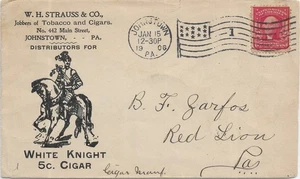 W. H. STRAUSS & CO.,
Jobbers of Tobacco and Cigars.
No. 442 Main Street,
JOHNSTOWN, - - PA.
DISTRIBUTORS FOR
JOHNSTOWN
JAN 15
12-30P
1906
PA.
1
B. F. Zarfos
Red Lion
Pa
WHITE KNIGHT
5c. CIGAR
Cigar Manf.